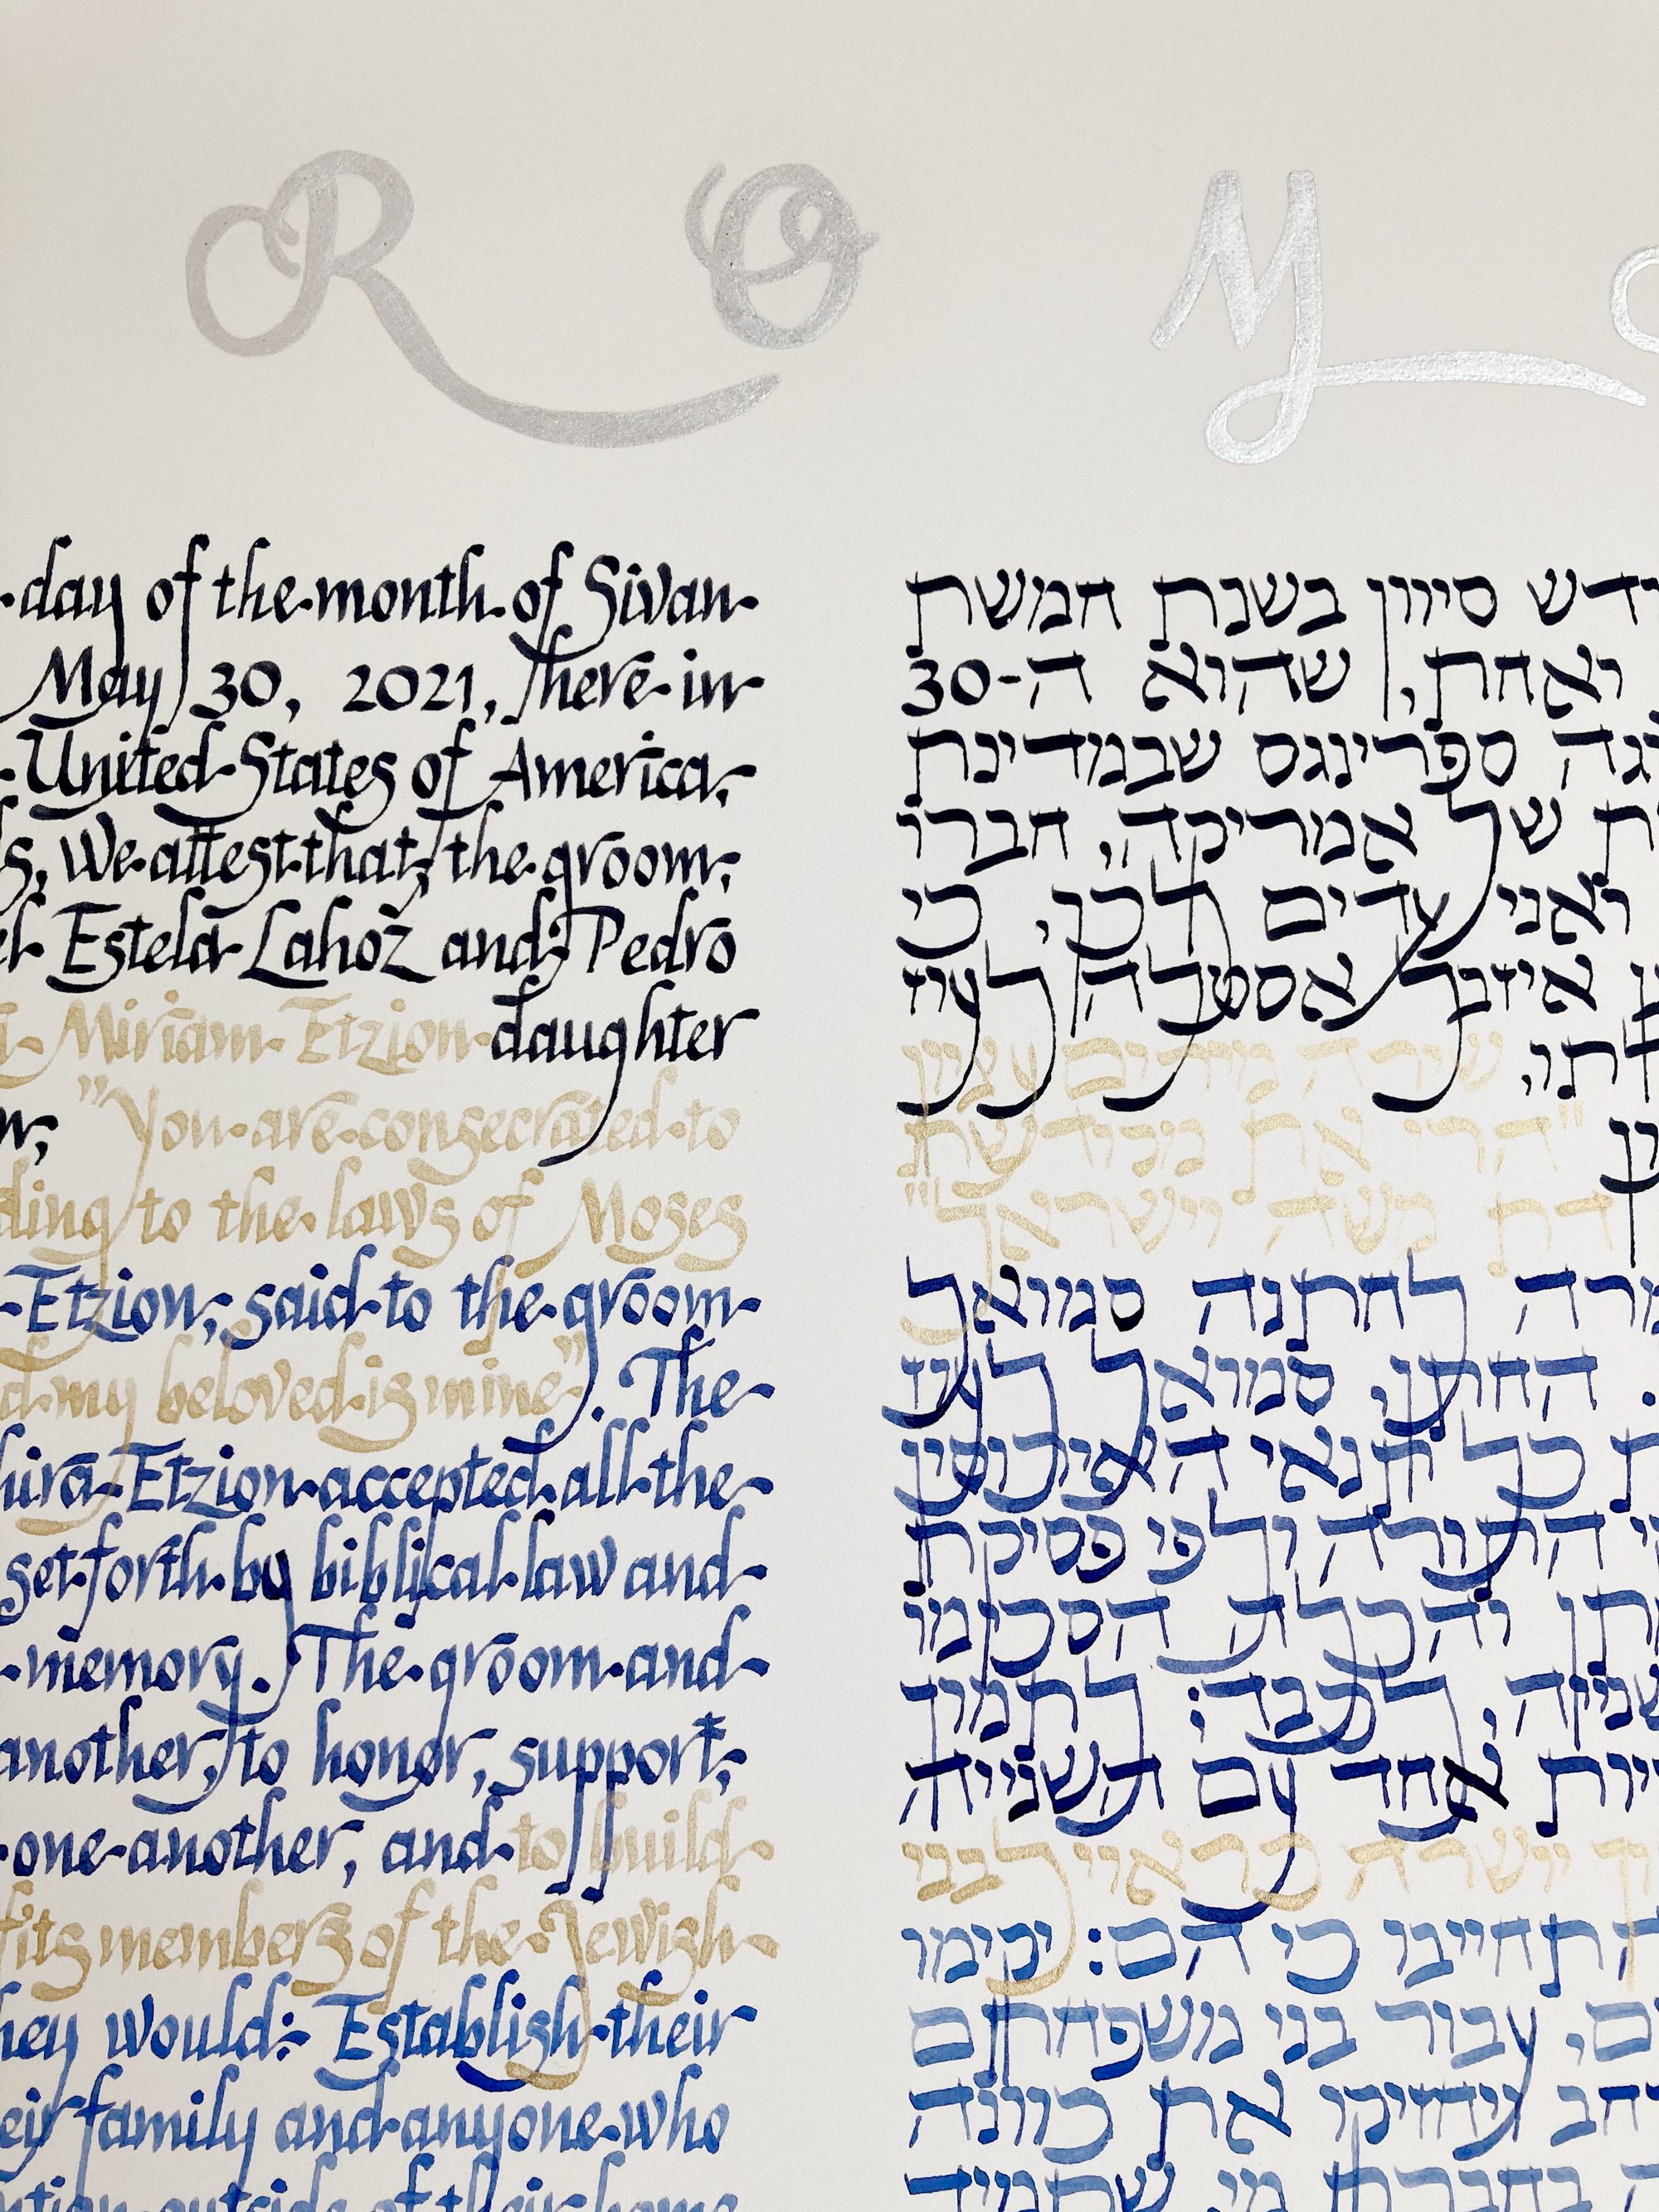 R O M
day of the month of Sivan
May 30, 2021, here in
United States of America,
We attest that, the groom,
Estela Lahoz and Pedro
Miriam Etzion daughter
"You are consecrated to
to the laws of Moses
Etzion, said to the groom
my beloved is mine". The
Etzion accepted all the
set forth by biblical law and
memory. The groom and
another, to honor, support,
one another, and to build
members of the Jewish
would: Establish their
family and anyone who
outside of their home
סיוון בשנת חמשת
ואחת, שהוא ה-30
ספרינגס שבמדינת
של אמריקה, חברו
ואני עדים לכך, כי
איזבל אסטלה לעוז
שירה מירים עציון
"הרי את מקודשת
דת משה וישראל"
לחתנה סמואל
החתן, סמואל לעוז
כל תנאי האירוסין
התורה ולפי פסיקת
והכלה הסכימו
לכבד; לתמוך
אחד עם השנייה
ישרה כראוי לבני
התחייבו כי הם: יקימו
עבור בני משפחתם
ויחזיקו את כוונה
בחברת מי שתמיד